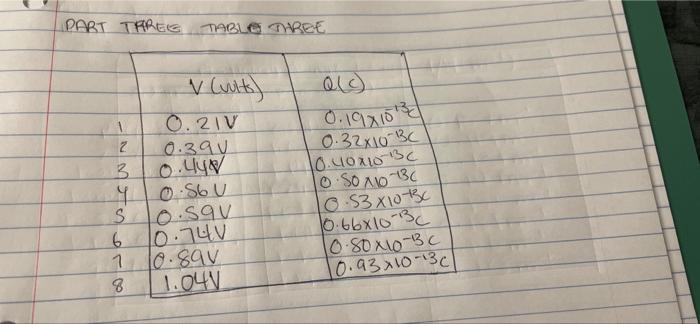 PART THREE TABLE THREE
V (volts) Q(c)
1 0.21V 0.19x10-13c
2 0.39V 0.32x10-13c
3 0.44V 0.40x10-13c
4 0.56V 0.50x10-13c
5 0.59V 0.53x10-13c
6 0.74V 0.66x10-13c
7 0.89V 0.80x10-13c
8 1.04V 0.93x10-13c